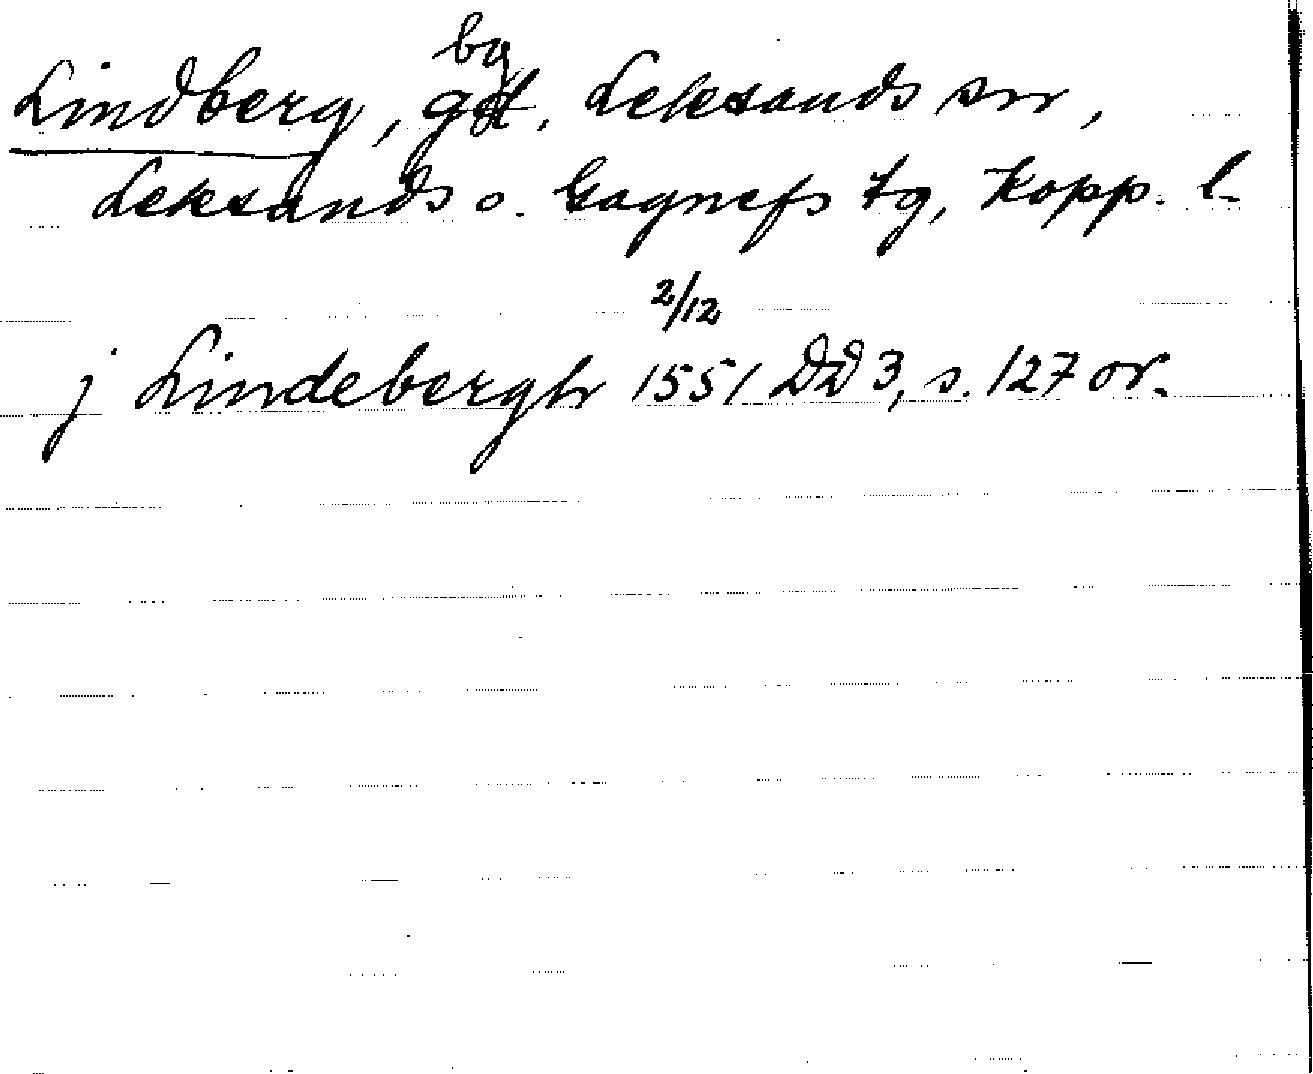 bg
Lindberg, gd. Leksands sn,
Leksands o. Gagnefs tg, Kopp. l.
2/12
j Lindebergh 1551 DD 3, s. 127 or.